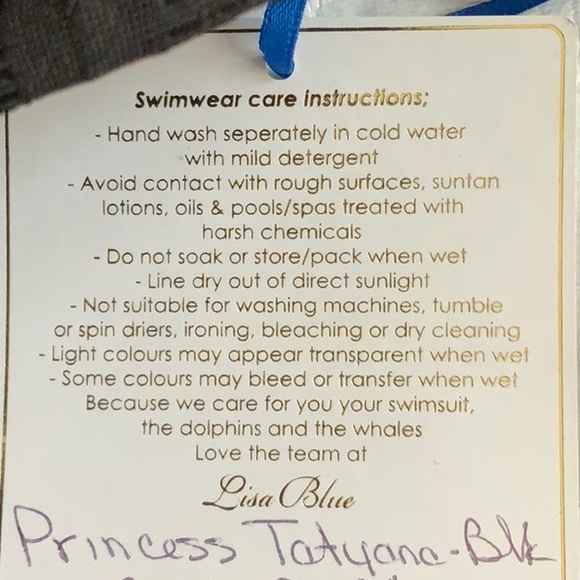 Swimwear care instructions;
- Hand wash seperately in cold water
with mild detergent
- Avoid contact with rough surfaces, suntan
lotions, oils & pools/spas treated with
harsh chemicals
- Do not soak or store/pack when wet
- Line dry out of direct sunlight
- Not suitable for washing machines, tumble
or spin driers, ironing, bleaching or dry cleaning
- Light colours may appear transparent when wet
- Some colours may bleed or transfer when wet
Because we care for you your swimsuit,
the dolphins and the whales
Love the team at
Lisa Blue
Princess Tatyana-Blk